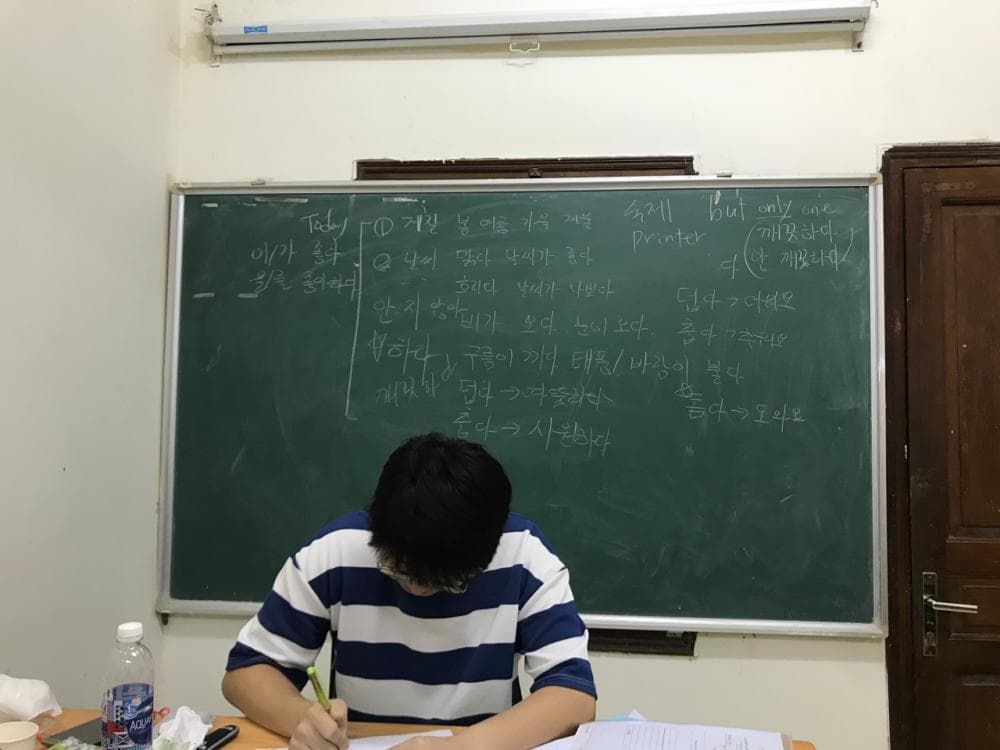 Today
이/가 좋다
을/를 좋아하다
① 계절 봄 여름 가을 겨울
② 날씨 맑다 날씨가 좋다
흐리다 날씨가 나쁘다
비가 오다 눈이 오다.
구름이 끼다 태풍/바람이 불다
덥다 →
춥다 →
안 지 않다
하다
깨끗하
숙제
printer
but only one
깨끗하다
안 깨끗하다
다
덥다 → 더워요
춥다 → 추워요
돕다 → 도와요
AQUAFI